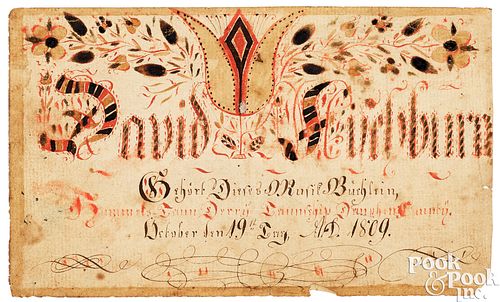 David
Gehört Dieses Musik Büchlein,
Hummels Taun Derry Taunschip Dauphin Caunty.
October den 19th Tag, AD. 1809.
POOK
& POOK
INC.